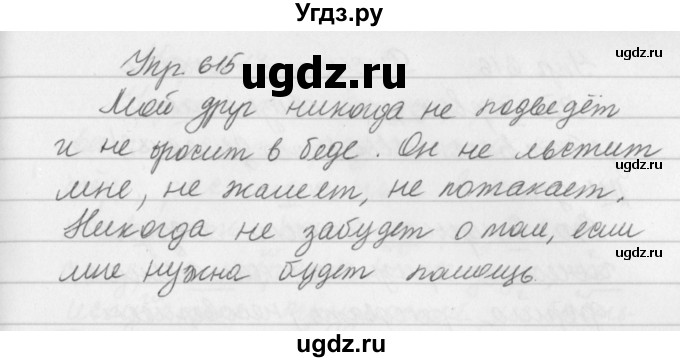 Угдз.ру
Упр. 615
ugdz.ru
Мой друг никогда не подведёт
и не бросит в беде. Он не льстит
мне, не жалеет, не потакает.
Никогда не забудет о том, если
мне нужна будет помощь.
ugdz.ru